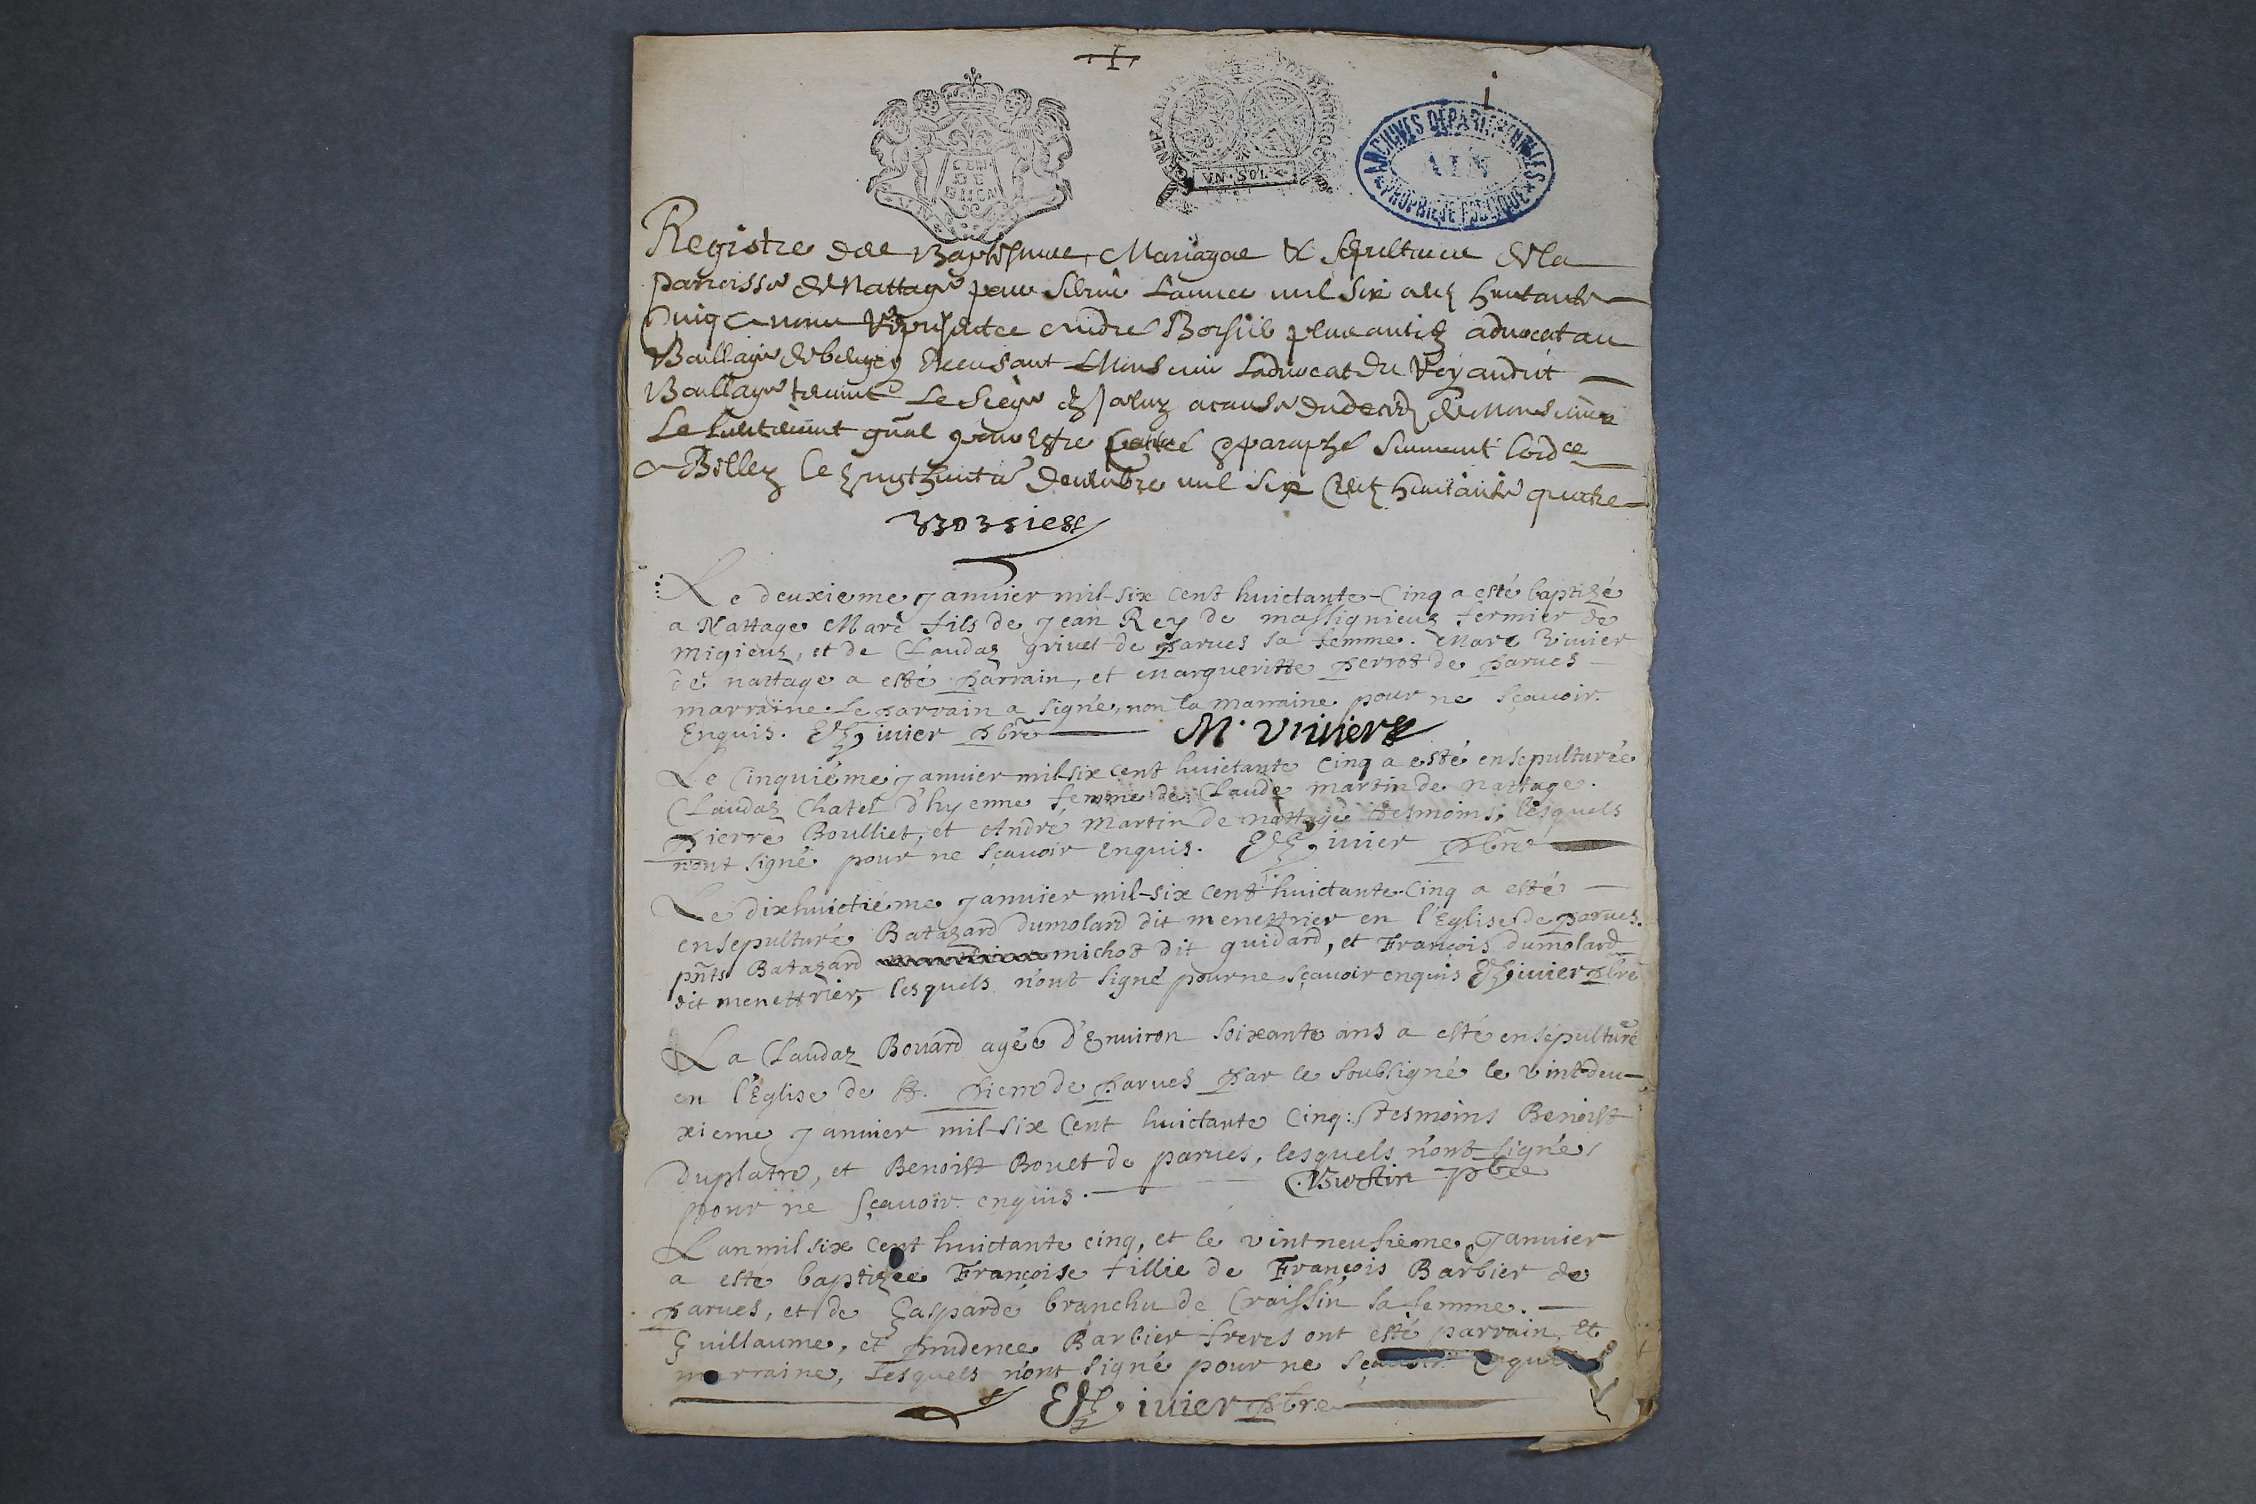 i
GEN DE BUGEY
VN SOL
ARCHIVES DÉPARTEMENTALES
AIN
PROPRIÉTÉ PUBLIQUE
Registre des Baptismes, Mariages & sepultures de la
parroisse de Nattage pour servir L'annee mil six cents huictante
cinq a nous André advocat au
Baillage de belley Monsieur L'advocat du Roy audit
Baillage Le siege a cause du de Monsieur
Le Lieutenant gñal pour estre paraphé
a Belley le vingt huict decembre mil six cents huictante quatre
Le deuxieme janvier mil-six cent huictante-Cinq a esté baptizé
a Nattage Marc fils de jean Rey de massignieuz fermier de
migieuz, et de Claudaz grivet de parves sa femme. Marc Vivier
de nattage a esté parrain, et margueritte perrot de parves
marraine. Le parrain a signé, non la marraine pour ne sçavoir.
Enquis. ivier pbrē M. Viviers
Le Cinquiéme janvier mil-six cent huictante Cinq a esté ensepulturée
Claudaz Chatel d'hyenne femme de Claude martin de nattage.
Pierre Boulliet, et André Martin de nattage tesmoins, lesquels
n'ont signé pour ne sçavoir enquis. ivier pbrē
Le dixhuictiéme janvier mil-six cent huictante-Cinq a esté
ensepulturé Batazard Dumolard dit menettrier en l'Eglise de parves.
pñts Batazard michot dit guidard, et François dumolard
dit menettrier, lesquels n'ont signé pour ne sçavoir enquis ivier pbrē
La Claudaz Bovard agée d'Environ soixante ans a esté ensépulturée
en l'Eglise de St. pierre de parves par le soubsigné le vint-deu-
xieme janvier mil-six Cent huictante Cinq: tesmoins Benoist
Duplatre, et Benoist Bovet de parves, lesquels n'ont signé
pour ne sçavoir enquis. pbre
L'an mil six cent huictante cinq, et le vintneusieme janvier
a esté baptizée Françoise fillie de François Barbier de
parves, et de Gasparde branchu de Craissin sa femme.
Guillaume, et prudence Barbier freres ont esté parrain, et
marraine, lesquels n'ont signé pour ne sçavoir enquis
ivier pbre